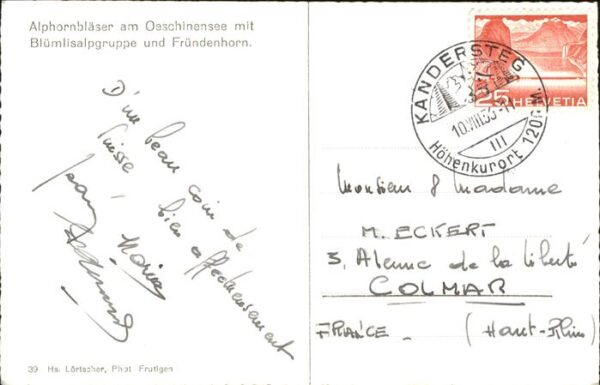 Alphornbläser am Oeschinensee mit
Blümlisalpgruppe und Fründenhorn.
D'un beau coin de
Suisse,
bien affectueusement
39 Hs. Lörtscher, Phot Frutigen
KANDERSTEG
10.VIII.53-11
III
Höhenkurort 1200 M.
25 HELVETIA
Monsieur & Madame
M. ECKERT
3, Avenue de la liberté
COLMAR
FRANCE (Haut-Rhin)